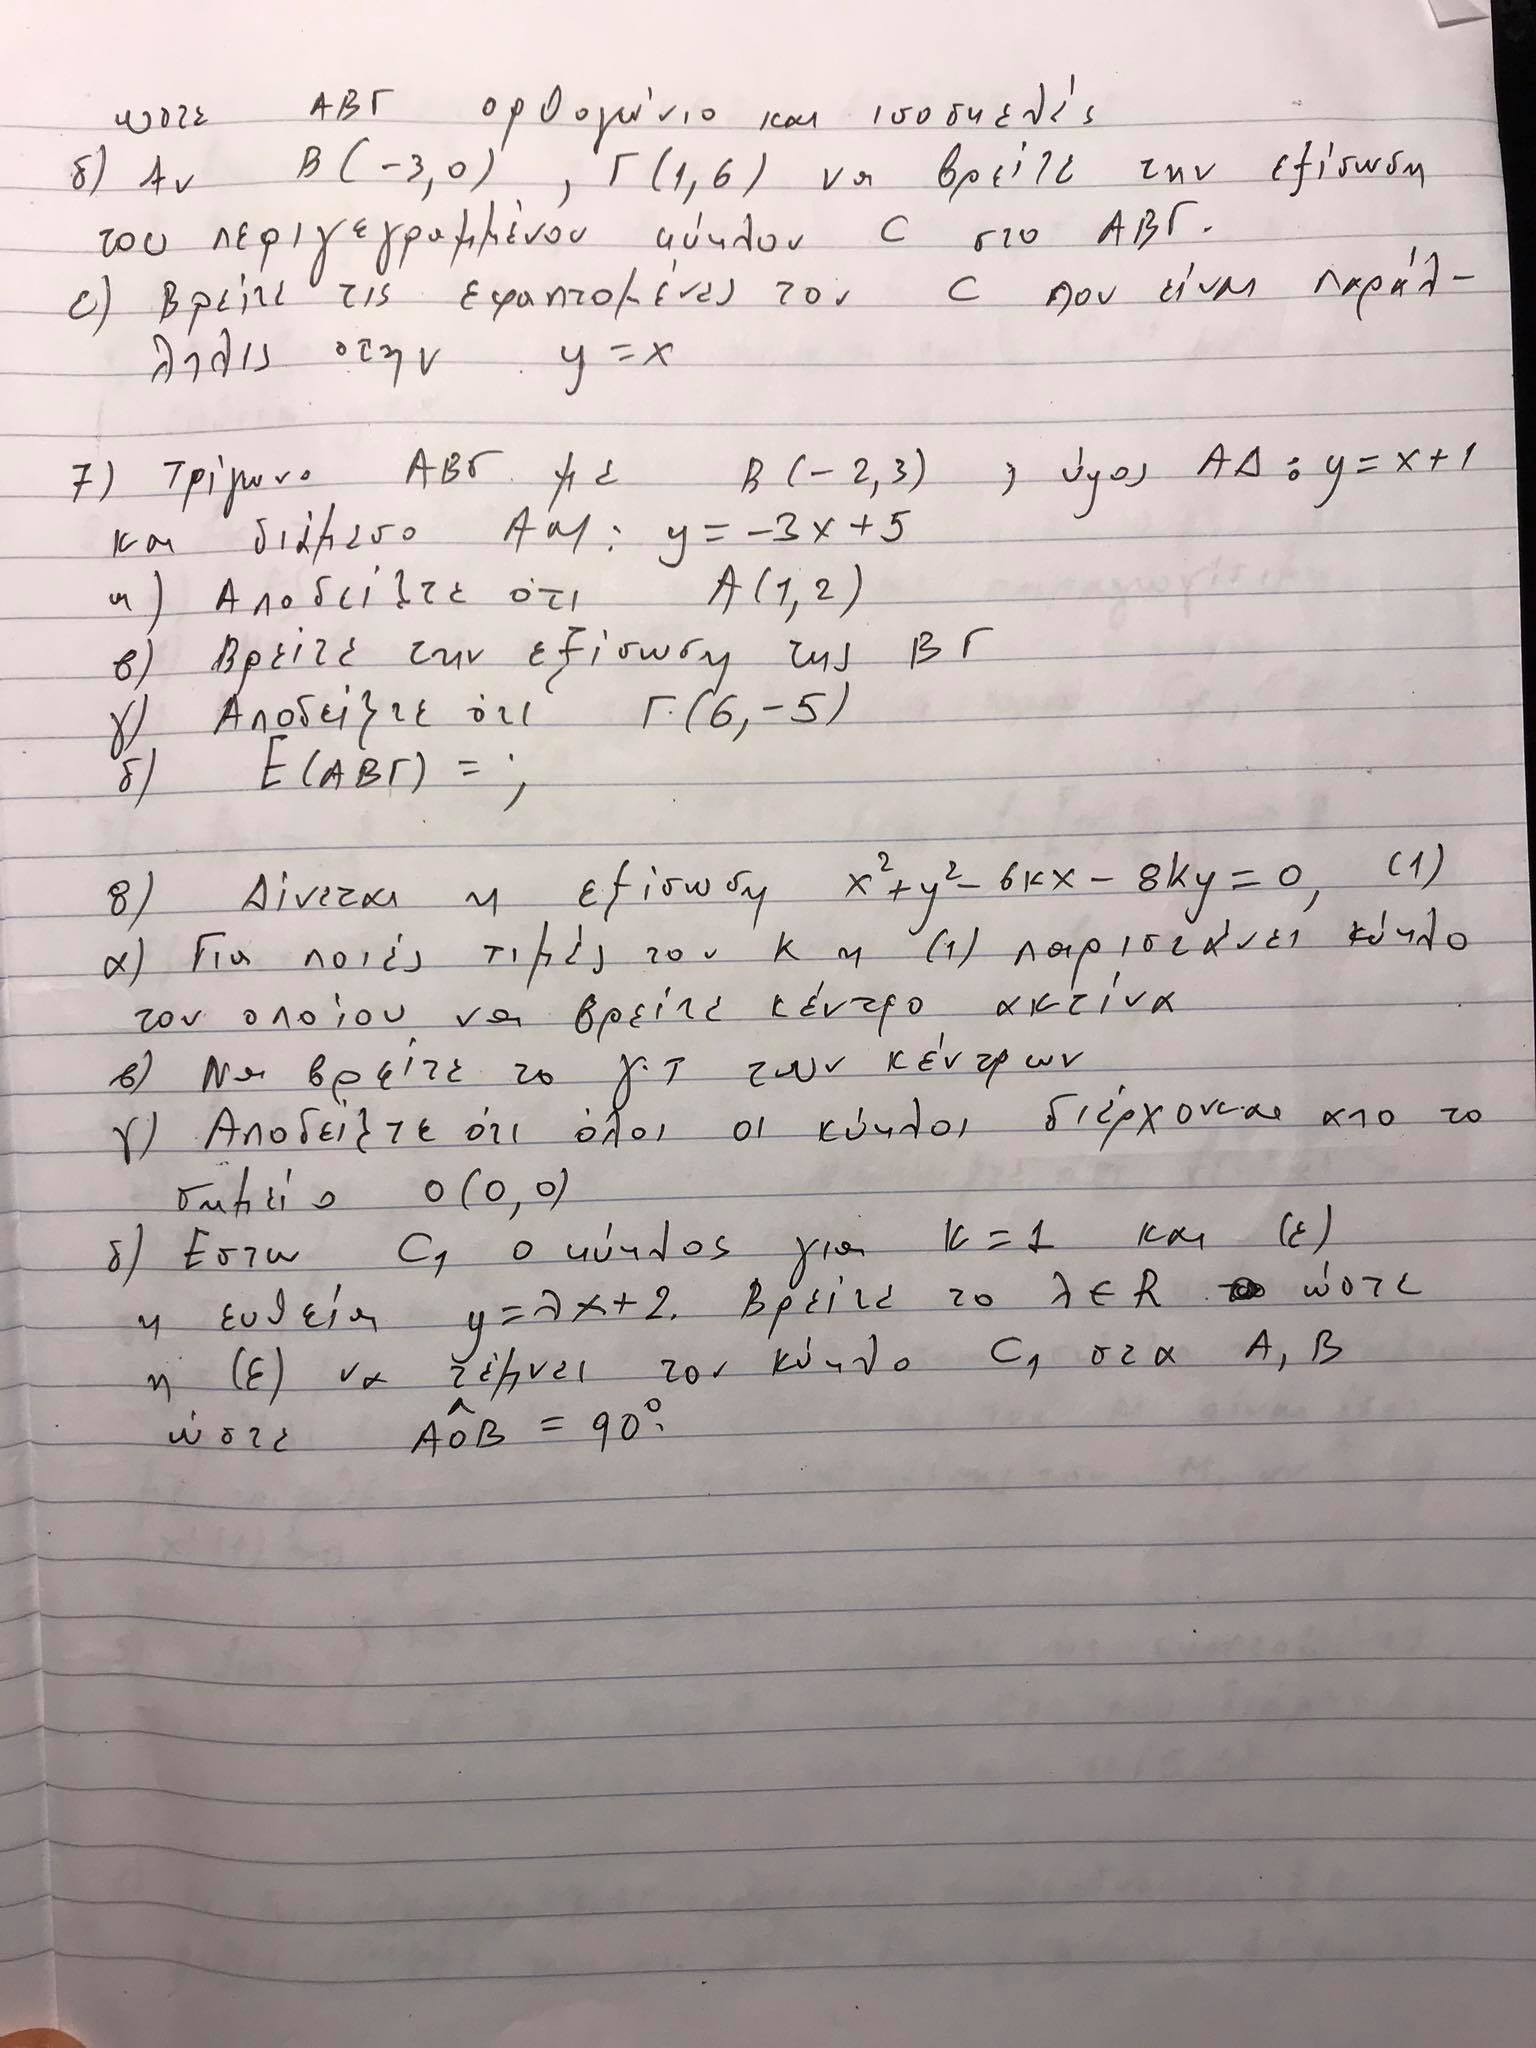 ώστε ΑΒΓ ορθογώνιο και ισοσκελές
δ) Αν Β(-3,0) , Γ(1,6) να βρείτε την εξίσωση
του περιγεγραμμένου κύκλου C στο ΑΒΓ.
ε) Βρείτε τις εφαπτομένες του C που είναι παράλ-
ληλες στην y=x
7) Τρίγωνο ΑΒΓ με Β(-2,3) , ύψος ΑΔ: y=x+1
και διάμεσο ΑΜ: y=-3x+5
α) Αποδείξτε ότι Α(1,2)
β) Βρείτε την εξίσωση της ΒΓ
γ) Αποδείξτε ότι Γ(6,-5)
δ) Ε(ΑΒΓ) = ;
8) Δίνεται η εξίσωση x²+y²-6kx-8ky=0, (1)
α) Για ποιές τιμές του k η (1) παριστάνει κύκλο
του οποίου να βρείτε κέντρο ακτίνα
β) Να βρείτε το γ.τ των κέντρων
γ) Αποδείξτε ότι όλοι οι κύκλοι διέρχονται απο το
σημείο Ο(0,0)
δ) Εστω C₁ ο κύκλος για k=1 και (ε)
η ευθεία y=λx+2. Βρείτε το λ∈R ώστε
η (ε) να τέμνει τον κύκλο C₁ στα Α, Β
ώστε ΑÔΒ = 90°.